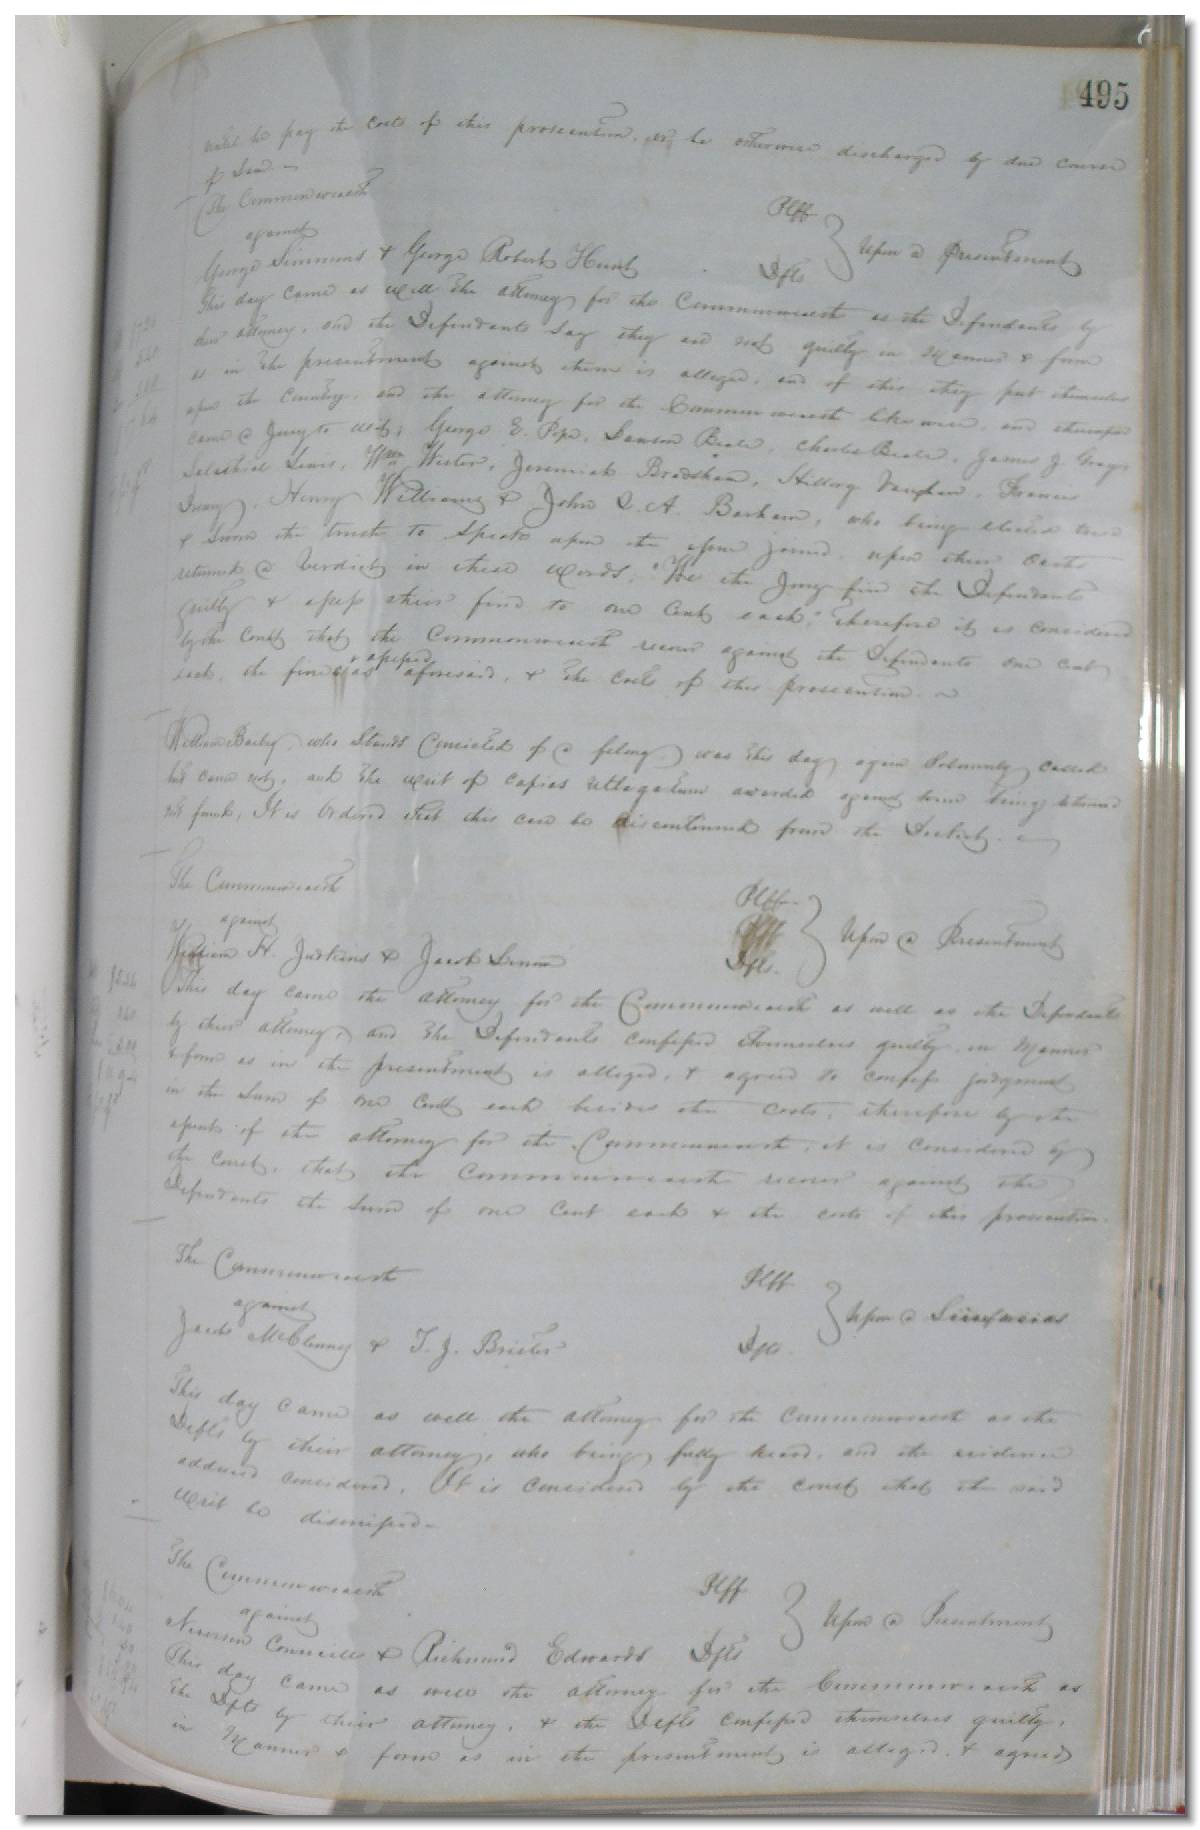 495
until he pay the costs of this prosecution, or be otherwise discharged by due course
of Law.
The Commonwealth Plff
against Upon a Presentment
George Simmons & George Robert Hunt Dfts
This day came as well the attorney for the Commonwealth as the Defendants by
their attorney, and the Defendants say they are not guilty in Manner & form
as in the presentment against them is alleged, and of this they put themselves
upon the Country, and the attorney for the Commonwealth likewise, and thereupon
came a Jury to wit; George E. Pope, Lawson Beale, Charles Beale, James J. Gray,
Salathiel Lewis, Wm Wister, Jeremiah Bradshaw, Hillory Vaughan, Francis
Henry Williams & John A. Barham, who being elected tried
& sworn the truth to speak upon the issue joined, upon their oaths
returned a Verdict in these words, "We the Jury find the Defendants
guilty & assess their fine to one Cent each," Therefore it is considered
by the Court that the Commonwealth recover against the Defendants one cent
each, the fine & assessed as aforesaid, & the Costs of this prosecution.
William Bailey who stands Convicted of a felony was this day again Solemnly called
but came not, and the writ of Capias Utlagatum awarded against him being returned
not found, It is Ordered that this case be discontinued from the Docket.
The Commonwealth Plff
against Plff Upon a Presentment
William H. Judkins & Jacob Dfts.
This day came the attorney for the Commonwealth as well as the Defendants
by their attorney, and the Defendants confessed themselves guilty in Manner
& form as in the presentment is alleged, & agreed to confess judgment
in the Sum of one Cent each besides the costs, therefore by the
assent of the attorney for the Commonwealth, it is considered by
the Court, that the Commonwealth recover against the
Defendants the Sum of one Cent each & the costs of this prosecution.
The Commonwealth Plff
against Upon a Scirefacias
Jacob McClenny & T. J. Brister Dfts.
This day came as well the attorney for the Commonwealth as the
Defts by their attorney, who being fully heard, and the evidence
adduced considered, It is considered by the court that the said
writ be dismissed.
The Commonwealth Plff
against Upon a Presentment
Newsom Councill & Richmond Edwards Dfts
This day came as well the attorney for the Commonwealth as
the Dfts by their attorney, & the Defts confessed themselves guilty,
in Manner & form as in the presentment is alleged, & agreed